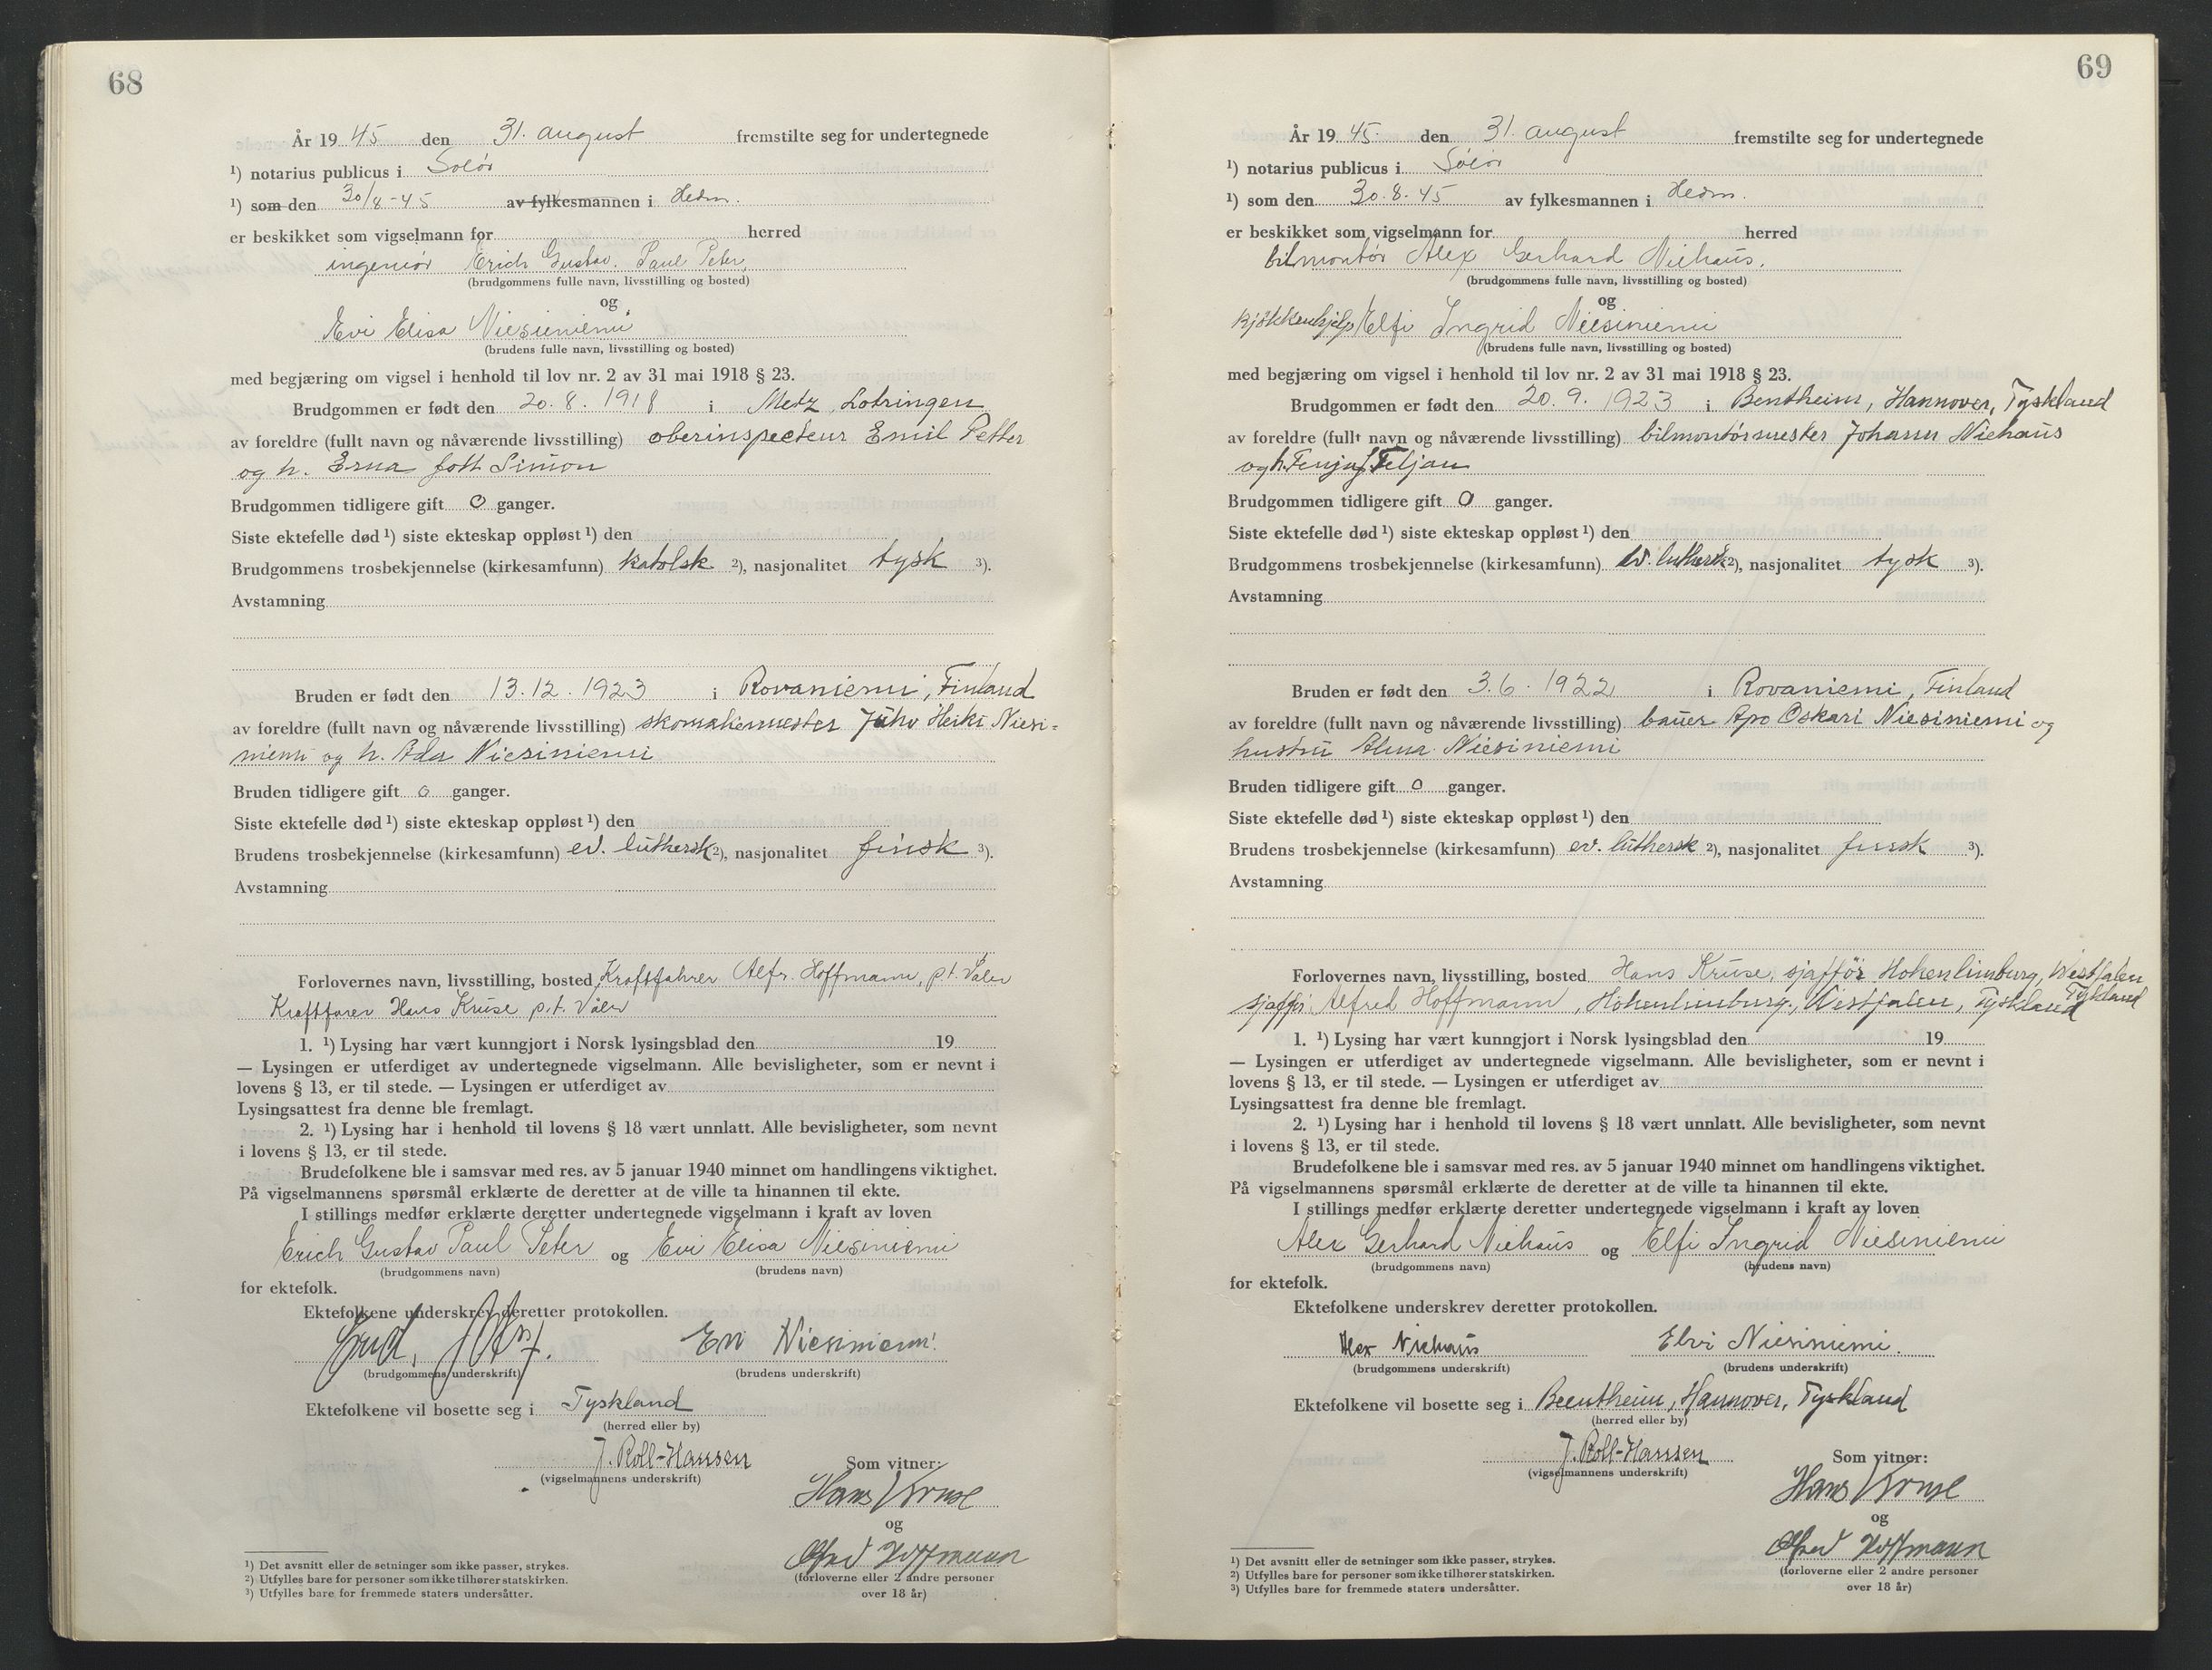 68
År 1945 den 31. august fremstilte seg for undertegnede
¹) notarius publicus i Solør
¹) som den 30/8-45 av fylkesmannen i Hedm.
er beskikket som vigselmann for herred
ingeniør Erich Gustav Paul Peter,
(brudgommens fulle navn, livsstilling og bosted)
og
Evi Elisa Niesiniemi
(brudens fulle navn, livsstilling og bosted)
med begjæring om vigsel i henhold til lov nr. 2 av 31 mai 1918 § 23.
Brudgommen er født den 20.8.1918 i Metz, Lotringen
av foreldre (fullt navn og nåværende livsstilling) oberinspecteur Emil Petter
og h. Erna født Simon
Brudgommen tidligere gift 0 ganger.
Siste ektefelle død ¹) siste ekteskap oppløst ¹) den
Brudgommens trosbekjennelse (kirkesamfunn) katolsk ²), nasjonalitet tysk ³).
Avstamning
Bruden er født den 13.12.1923 i Rovaniemi, Finland
av foreldre (fullt navn og nåværende livsstilling) skomakermester Juho Heiki Niesi-
niemi og h. Ada Niesiniemi
Bruden tidligere gift 0 ganger.
Siste ektefelle død ¹) siste ekteskap oppløst ¹) den
Brudens trosbekjennelse (kirkesamfunn) ev. luthersk ²), nasjonalitet finsk ³).
Avstamning
Forlovernes navn, livsstilling, bosted Kraftfahrer Alfr. Hoffmann, p.t. Våler
Kraftfarer Hans Kruse p.t. Våler
1. ¹) Lysing har vært kunngjort i Norsk lysingsblad den 19
— Lysingen er utferdiget av undertegnede vigselmann. Alle bevisligheter, som er nevnt i
lovens § 13, er til stede. — Lysingen er utferdiget av
Lysingsattest fra denne ble fremlagt.
2. ¹) Lysing har i henhold til lovens § 18 vært unnlatt. Alle bevisligheter, som nevnt
i lovens § 13, er til stede.
Brudefolkene ble i samsvar med res. av 5 januar 1940 minnet om handlingens viktighet.
På vigselmannens spørsmål erklærte de deretter at de ville ta hinannen til ekte.
I stillings medfør erklærte deretter undertegnede vigselmann i kraft av loven
Erich Gustav Paul Peter og Evi Elisa Niesiniemi
(brudgommens navn) (brudens navn)
for ektefolk.
Ektefolkene underskrev deretter protokollen.
Evi Niesiniemi
(brudgommens underskrift) (brudens underskrift)
Ektefolkene vil bosette seg i Tyskland
(herred eller by)
J. Roll-Hansen
(vigselmannens underskrift)
Som vitner:
Hans Kruse
og
Alfred Hoffmann
(forloverne eller 2 andre personer
over 18 år)
¹) Det avsnitt eller de setninger som ikke passer, strykes.
²) Utfylles bare for personer som ikke tilhører statskirken.
³) Utfylles bare for fremmede staters undersåtter.
69
År 1945 den 31. august fremstilte seg for undertegnede
¹) notarius publicus i Solør
¹) som den 30.8.45 av fylkesmannen i Hedm.
er beskikket som vigselmann for herred
bilmontør Alex Gerhard Niehaus.
(brudgommens fulle navn, livsstilling og bosted)
og
kjøkkenhjelp Elfi Ingrid Niesiniemi
(brudens fulle navn, livsstilling og bosted)
med begjæring om vigsel i henhold til lov nr. 2 av 31 mai 1918 § 23.
Brudgommen er født den 20.9.1923 i Bentheim, Hannover, Tyskland
av foreldre (fullt navn og nåværende livsstilling) bilmontørmester Johann Niehaus
og h. Teljan
Brudgommen tidligere gift 0 ganger.
Siste ektefelle død ¹) siste ekteskap oppløst ¹) den
Brudgommens trosbekjennelse (kirkesamfunn) ev. luthersk ²), nasjonalitet tysk ³).
Avstamning
Bruden er født den 3.6.1922 i Rovaniemi, Finland
av foreldre (fullt navn og nåværende livsstilling) bauer Apo Oskari Niesiniemi og
hustru Alma Niesiniemi
Bruden tidligere gift 0 ganger.
Siste ektefelle død ¹) siste ekteskap oppløst ¹) den
Brudens trosbekjennelse (kirkesamfunn) ev. luthersk ²), nasjonalitet finsk ³).
Avstamning
Forlovernes navn, livsstilling, bosted Hans Kruse, sjaffør Hohenlimburg, Westfalen
Tyskland
sjaffør Alfred Hoffmann, Hohenlimburg, Westfalen, Tyskland
1. ¹) Lysing har vært kunngjort i Norsk lysingsblad den 19
— Lysingen er utferdiget av undertegnede vigselmann. Alle bevisligheter, som er nevnt i
lovens § 13, er til stede. — Lysingen er utferdiget av
Lysingsattest fra denne ble fremlagt.
2. ¹) Lysing har i henhold til lovens § 18 vært unnlatt. Alle bevisligheter, som nevnt
i lovens § 13, er til stede.
Brudefolkene ble i samsvar med res. av 5 januar 1940 minnet om handlingens viktighet.
På vigselmannens spørsmål erklærte de deretter at de ville ta hinannen til ekte.
I stillings medfør erklærte deretter undertegnede vigselmann i kraft av loven
Alex Gerhard Niehaus og Elfi Ingrid Niesiniemi
(brudgommens navn) (brudens navn)
for ektefolk.
Ektefolkene underskrev deretter protokollen.
Alex Niehaus Elvi Niesiniemi.
(brudgommens underskrift) (brudens underskrift)
Ektefolkene vil bosette seg i Beentheim, Hannover, Tyskland
(herred eller by)
J. Roll-Hansen
(vigselmannens underskrift)
Som vitner:
Hans Kruse
og
Alfred Hoffmann
(forloverne eller 2 andre personer
over 18 år)
¹) Det avsnitt eller de setninger som ikke passer, strykes.
²) Utfylles bare for personer som ikke tilhører statskirken.
³) Utfylles bare for fremmede staters undersåtter.